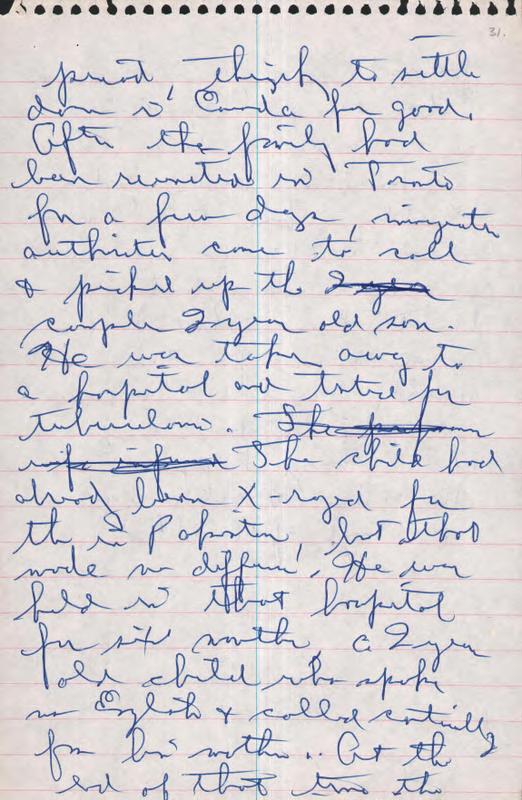 31.
period, to settle
down in Canada for good.
After the family had
been reunited in Toronto
for a few days, immigration
authorities came to call
& picked up the 2 year
couple 2 year old son.
He was taken away to
a hospital and treated for
tuberculosis. The
wife The child had
already been X-rayed for
tb in Pakistan, but that
made no difference. He was
held in that hospital
for six months, a 2 year
old child who spoke
no English & called continually
for his mother.. At the
end of that time the